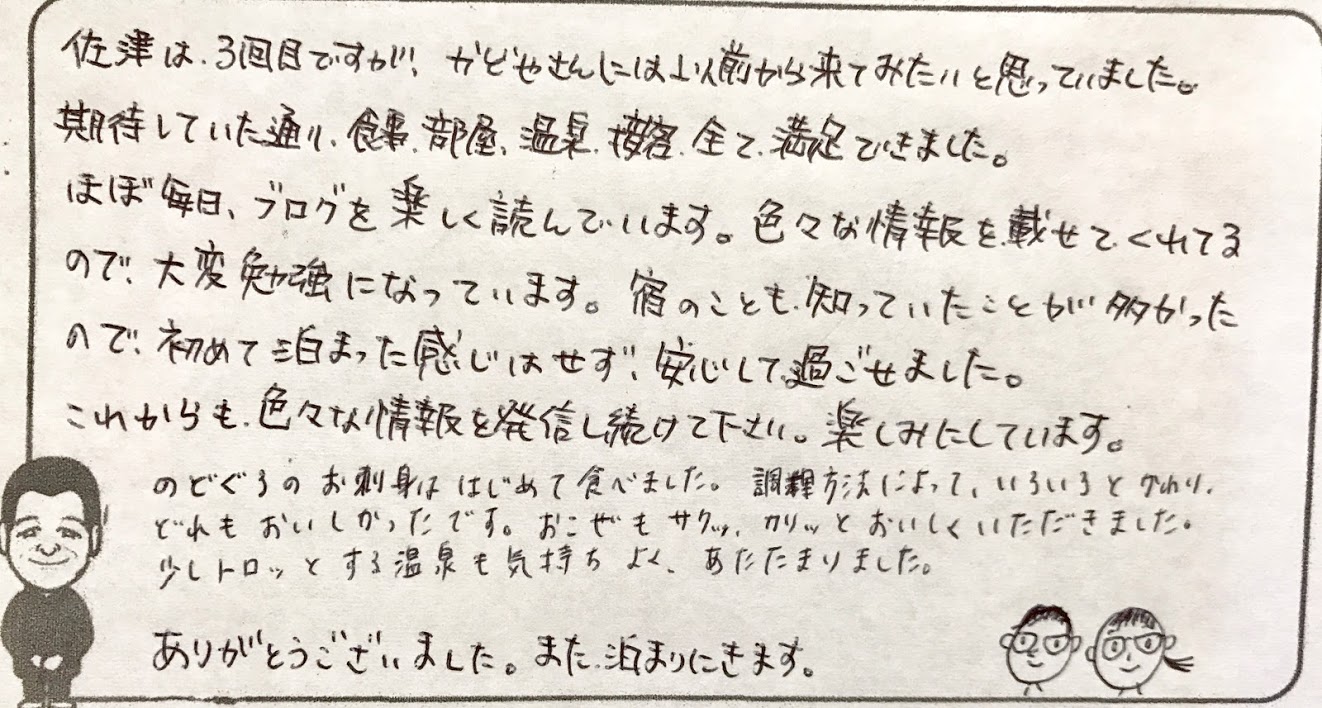 佐津は、3回目ですが、かどやさんには以前から来てみたいと思っていました。
期待していた通り、食事、部屋、温泉、接客、全て、満足できました。
ほぼ毎日、ブログを楽しく読んでいます。色々な情報を載せてくれてる
ので、大変勉強になっています。宿のことも、知っていたことが多かった
ので、初めて泊まった感じはせず、安心して過ごせました。
これからも、色々な情報を発信し続けて下さい。楽しみにしています。
のどぐろのお刺身ははじめて食べました。調理方法によって、いろいろとかわり、
どれもおいしかったです。おこぜもサクッ、カリッとおいしくいただきました。
少しトロッとする温泉も気持ちよく、あたたまりました。
ありがとうございました。また、泊まりにきます。